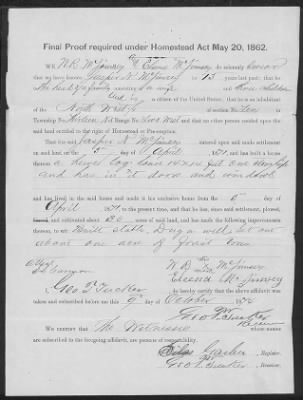 Final Proof required under Homestead Act May 20, 1862.
We, W. R. McTimsey & Elenra McTimsey do solemnly
that we have known Jasper N. McTimsey for 13 years last past; that he
is the head of a family consisting of a wife and three children
and is a citizen of the United States; that he is an inhabitant
of the North West 1/4 of section No. Ten in
Township No. of Range No. West and that no other person resided upon the
said land entitled to the right of Homestead or Pre-emption.
That the said Jasper N. McTimsey entered upon and made settlement
on said land on the 5 day of April, 1871, and had built a house
thereon a hewed log house 14 x 14 feet one story high
and has in it door and window
and has lived in the said house and made it his exclusive home from the 5 day of
April 1871, to the present time, and that he has, since said settlement, plowed,
fenced, and cultivated about 20 acres of said land, and has made the following improvements
thereon, to wit: Built stable, Dug a well, Set out
about one acre of fruit trees
W. R. McTimsey
McTimsey
I, Geo. T. Tucker do hereby certify that the above affidavit was
taken and subscribed before me this 9 day of October 1876
Geo. T. Tucker
We certify that The Witnesses whose names
are subscribed to the foregoing affidavit, are persons of respectability.
, Register.
Geo. T. Tucker, Receiver.